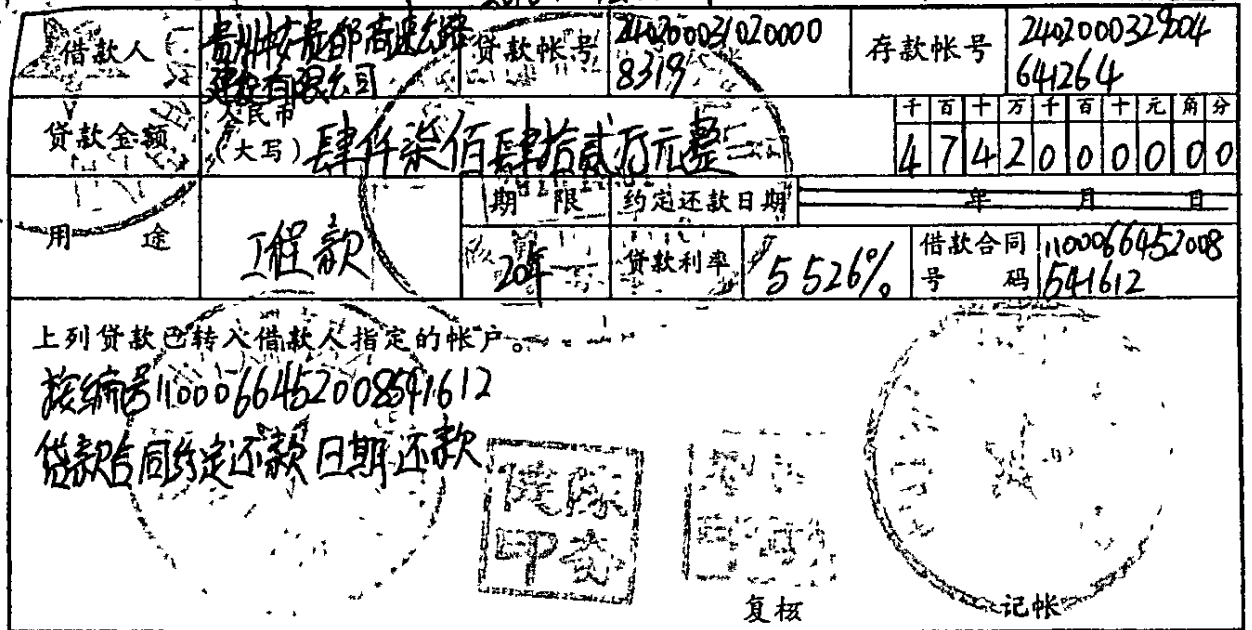 借款人 贵州中交贵都高速公路建设有限公司 贷款帐号 2402000310200008319 存款帐号 2402000329004641264
贷款金额 人民币(大写) 肆仟柒佰肆拾贰万元整 千百十万千百十元角分
4742000000
用途 工程款 期限 约定还款日期 年 月 日
20年 贷款利率 5.526% 借款合同号码 1100066452008541612
上列贷款已转入借款人指定的帐户。
按编号1100066452008541612
贷款合同约定还款日期还款
复核 记帐